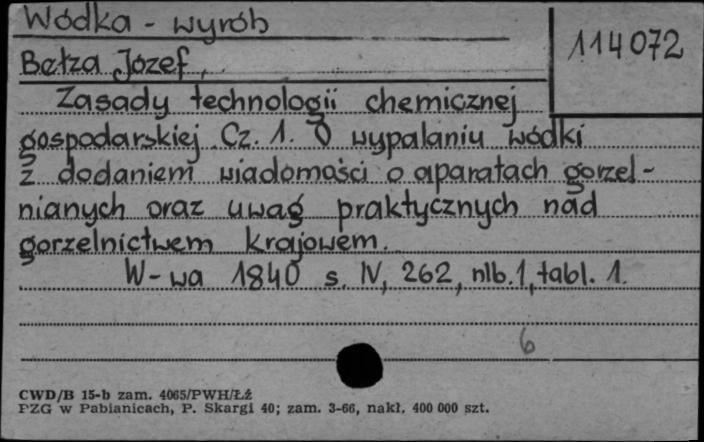 Wódka - wyrób
114072
Bełza Józef,
Zasady technologii chemicznej
gospodarskiej. Cz. 1. O wypalaniu wódki
z dodaniem wiadomości o aparatach gorzel-
nianych oraz uwag praktycznych nad
gorzelnictwem krajowem.
W-wa 1840 s. IV, 262, nlb. 1, tabl. 1.
6
CWD/B 15-b zam. 4065/PWH/Łź
PZG w Pabianicach, P. Skargi 40; zam. 3-66, nakł. 400 000 szt.